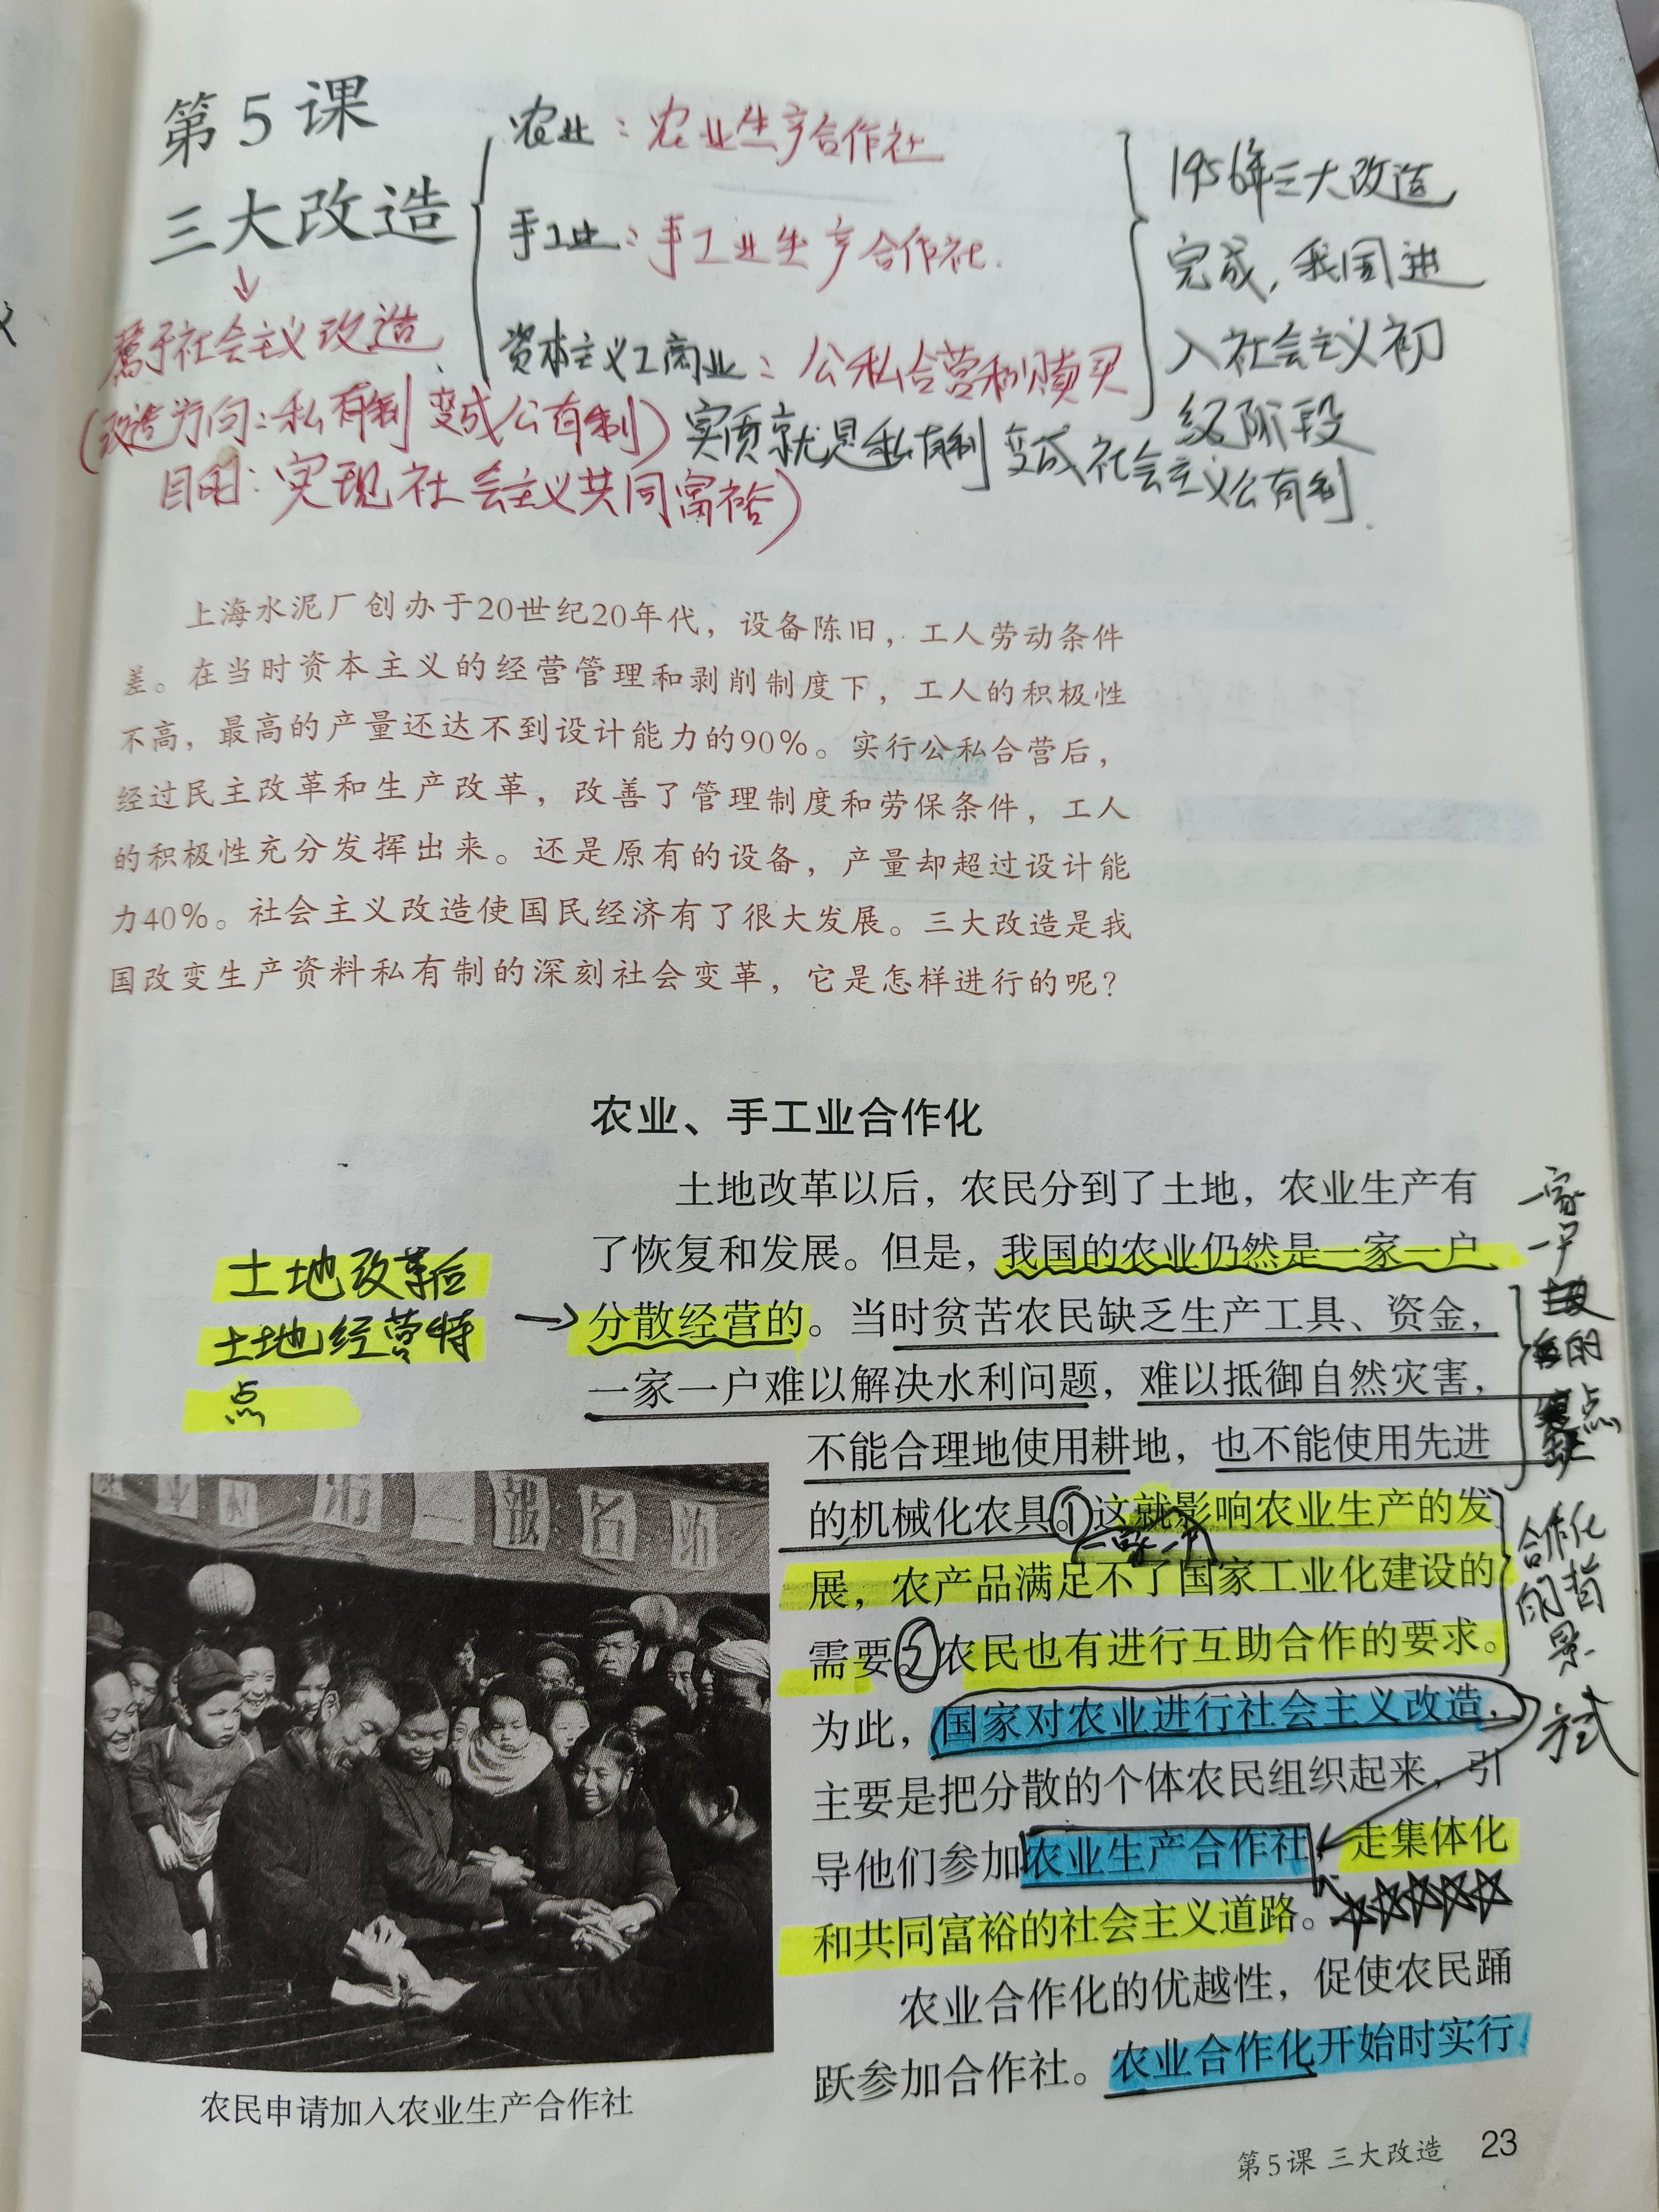 第5课
三大改造
农业：农业生产合作社
手工业：手工业生产合作社.
资本主义工商业：公私合营和赎买
1956年三大改造
完成，我国进
入社会主义初
级阶段
属于社会主义改造.
(改造方向：私有制变成公有制)
目的：实现社会主义共同富裕)
实质就是私有制变成社会主义公有制.
上海水泥厂创办于20世纪20年代，设备陈旧，工人劳动条件
差。在当时资本主义的经营管理和剥削制度下，工人的积极性
不高，最高的产量还达不到设计能力的90%。实行公私合营后，
经过民主改革和生产改革，改善了管理制度和劳保条件，工人
的积极性充分发挥出来。还是原有的设备，产量却超过设计能
力40%。社会主义改造使国民经济有了很大发展。三大改造是我
国改变生产资料私有制的深刻社会变革，它是怎样进行的呢？
农业、手工业合作化
土地改革以后，农民分到了土地，农业生产有
了恢复和发展。但是，我国的农业仍然是一家一户
分散经营的。当时贫苦农民缺乏生产工具、资金，
一家一户难以解决水利问题，难以抵御自然灾害，
不能合理地使用耕地，也不能使用先进
的机械化农具。①这就影响农业生产的发
展，农产品满足不了国家工业化建设的
需要。②农民也有进行互助合作的要求。
为此，国家对农业进行社会主义改造，
主要是把分散的个体农民组织起来，引
导他们参加农业生产合作社，走集体化
和共同富裕的社会主义道路。
农业合作化的优越性，促使农民踊
跃参加合作社。农业合作化开始时实行
土地改革后
土地经营特
点
一家
一户
的
点
一家一户
合作化
的背
景
方式
第一报名站
农民申请加入农业生产合作社
第5课 三大改造 23